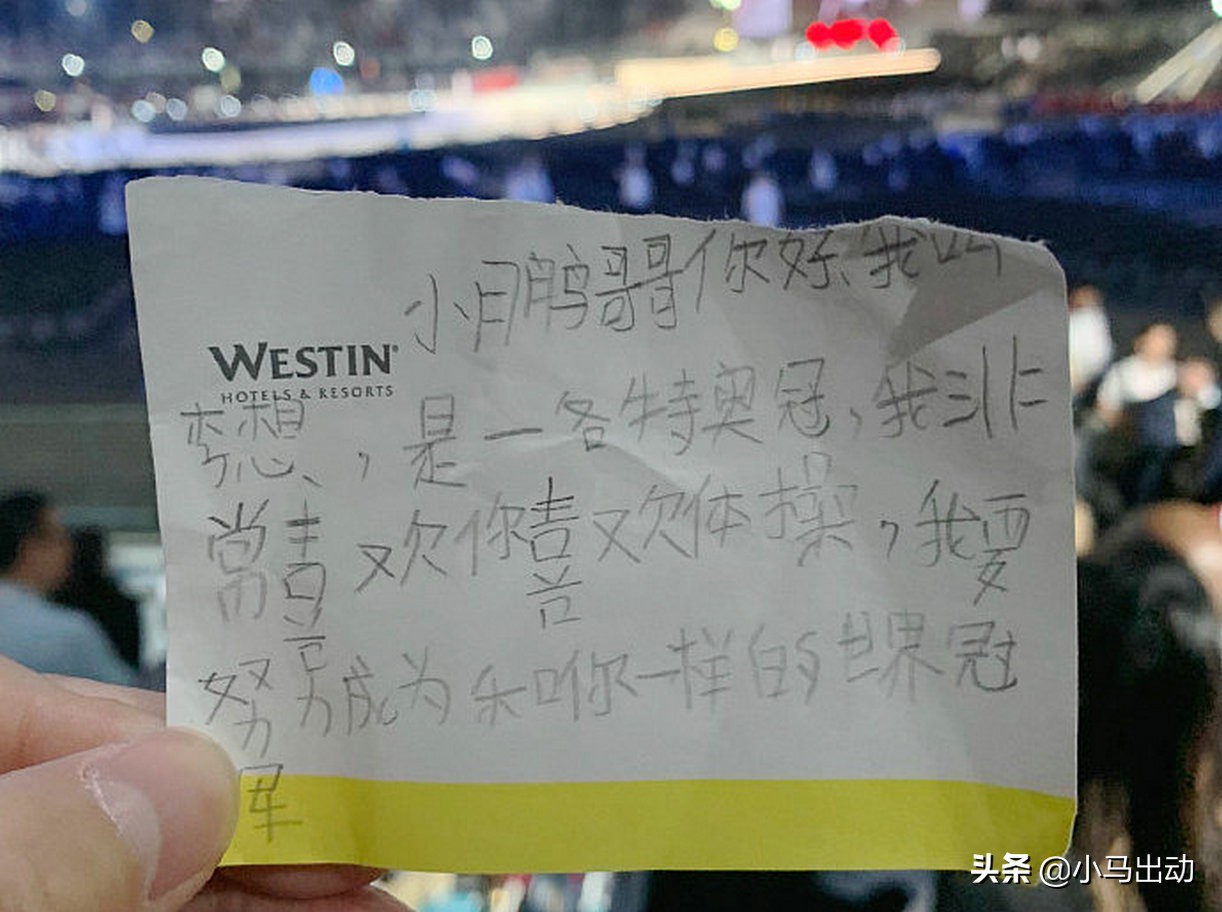 小鹏哥哥你好、我叫
WESTIN
HOTELS & RESORTS
李想、,是一各特奥冠,我非
常喜欢你喜欢体操,我要
努力成为和你一样的世界冠
军
头条 @小马出动